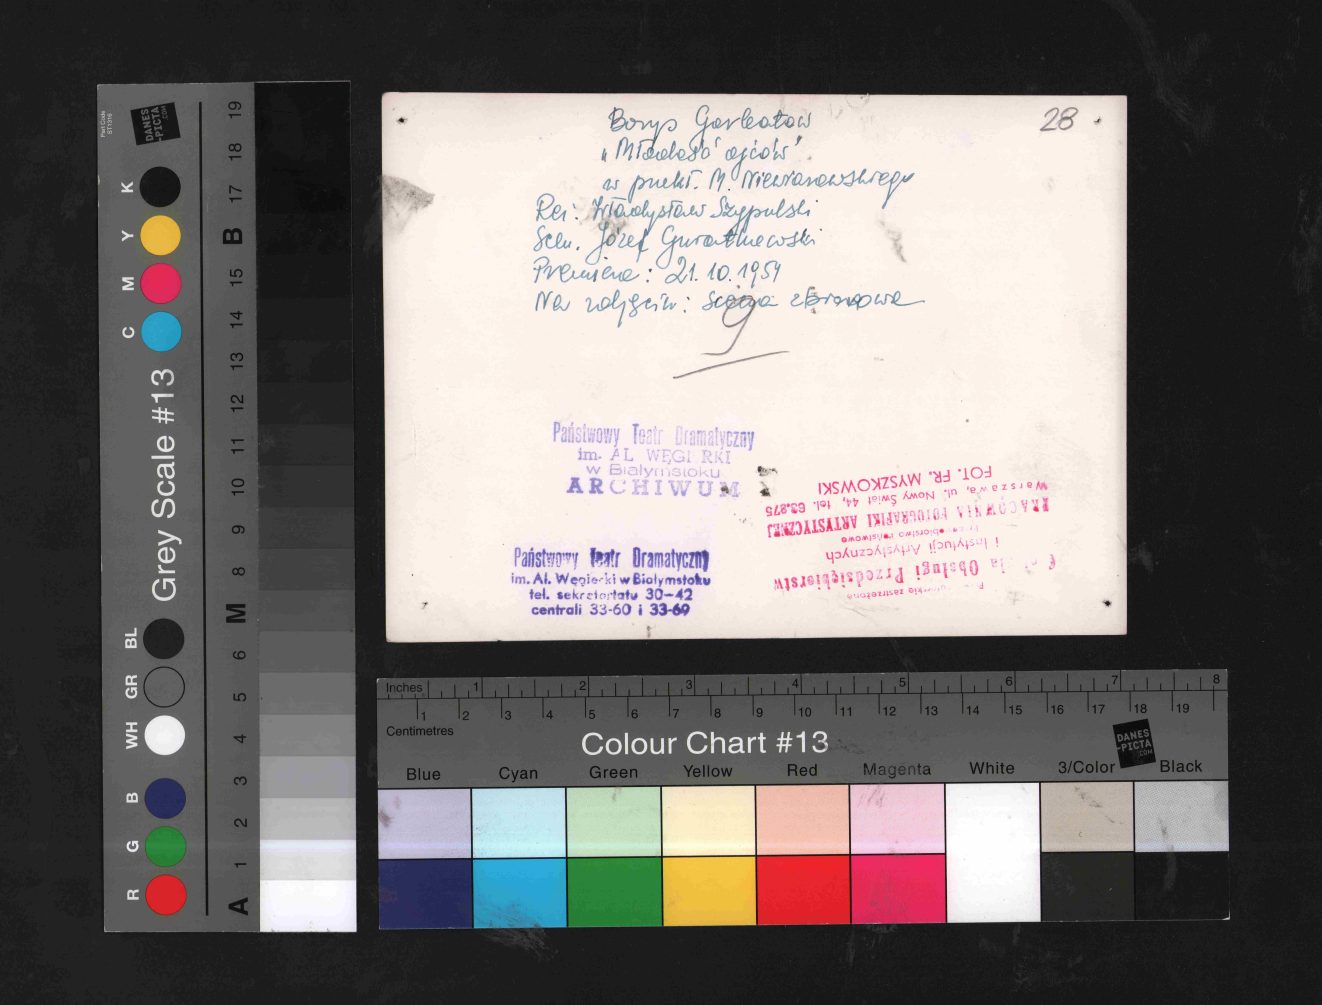 Borys Gorbatow
28
„Młodość ojców"
w przekł. M. Niewiarowskiego
Reż: Władysław Szypulski
Scen. Józef
Premiera: 21.10.1954
Na zdjęciu: scena zbiorowa
9
Państwowy Teatr Dramatyczny
im. AL WĘGIERKI
w Białymstoku
ARCHIWUM
Państwowy Teatr Dramatyczny
im. Al. Węgierki w Białymstoku
tel. sekretariatu 30-42
centrali 33-60 i 33-69
zastrzeżone
Obsługi Przedsiębiorstw
i Instytucji Artystycznych
Przedsiębiorstwo Państwowe
PRACOWNIA FOTOGRAFIKI ARTYSTYCZNEJ
Warszawa, ul. Nowy Świat 44, tel. 63.875
FOT. FR. MYSZKOWSKI
Part Code
ST1316
DANES
-PICTA
.COM
Grey Scale #13
K
Y
M
C
BL
GR
WH
B
G
R
19
18
17
B
15
14
13
12
11
10
9
8
M
6
5
4
3
2
1
A
Inches 1 2 3 4 5 6 7 8
1 2 3 4 5 6 7 8 9 10 11 12 13 14 15 16 17 18 19
Centimetres
Colour Chart #13
DANES
-PICTA
.COM
Blue Cyan Green Yellow Red Magenta White 3/Color Black